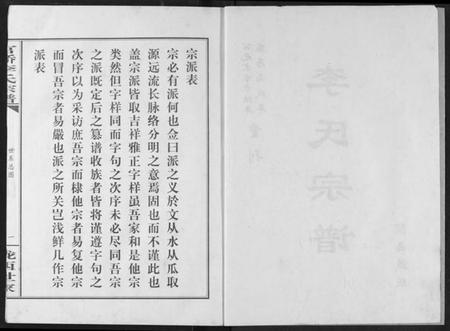 宗派表
宗必有派何也佥曰派之义於文从水从瓜取
源远流长脉络分明之意焉固也而不谨此也
盖宗派皆取吉祥雅正字样虽吾家和是他宗
类然但字样同而字句之次序未必尽同吾宗
之派既定后之篡谱收族者皆将谨遵字句之
次序以为采访庶吾宗而棣他宗者易复他宗
而冒吾宗者易严也派之所关岂浅鲜几作宗
派表
李氏宗谱
世系总图
一
陇西世家
李氏宗谱
重刊